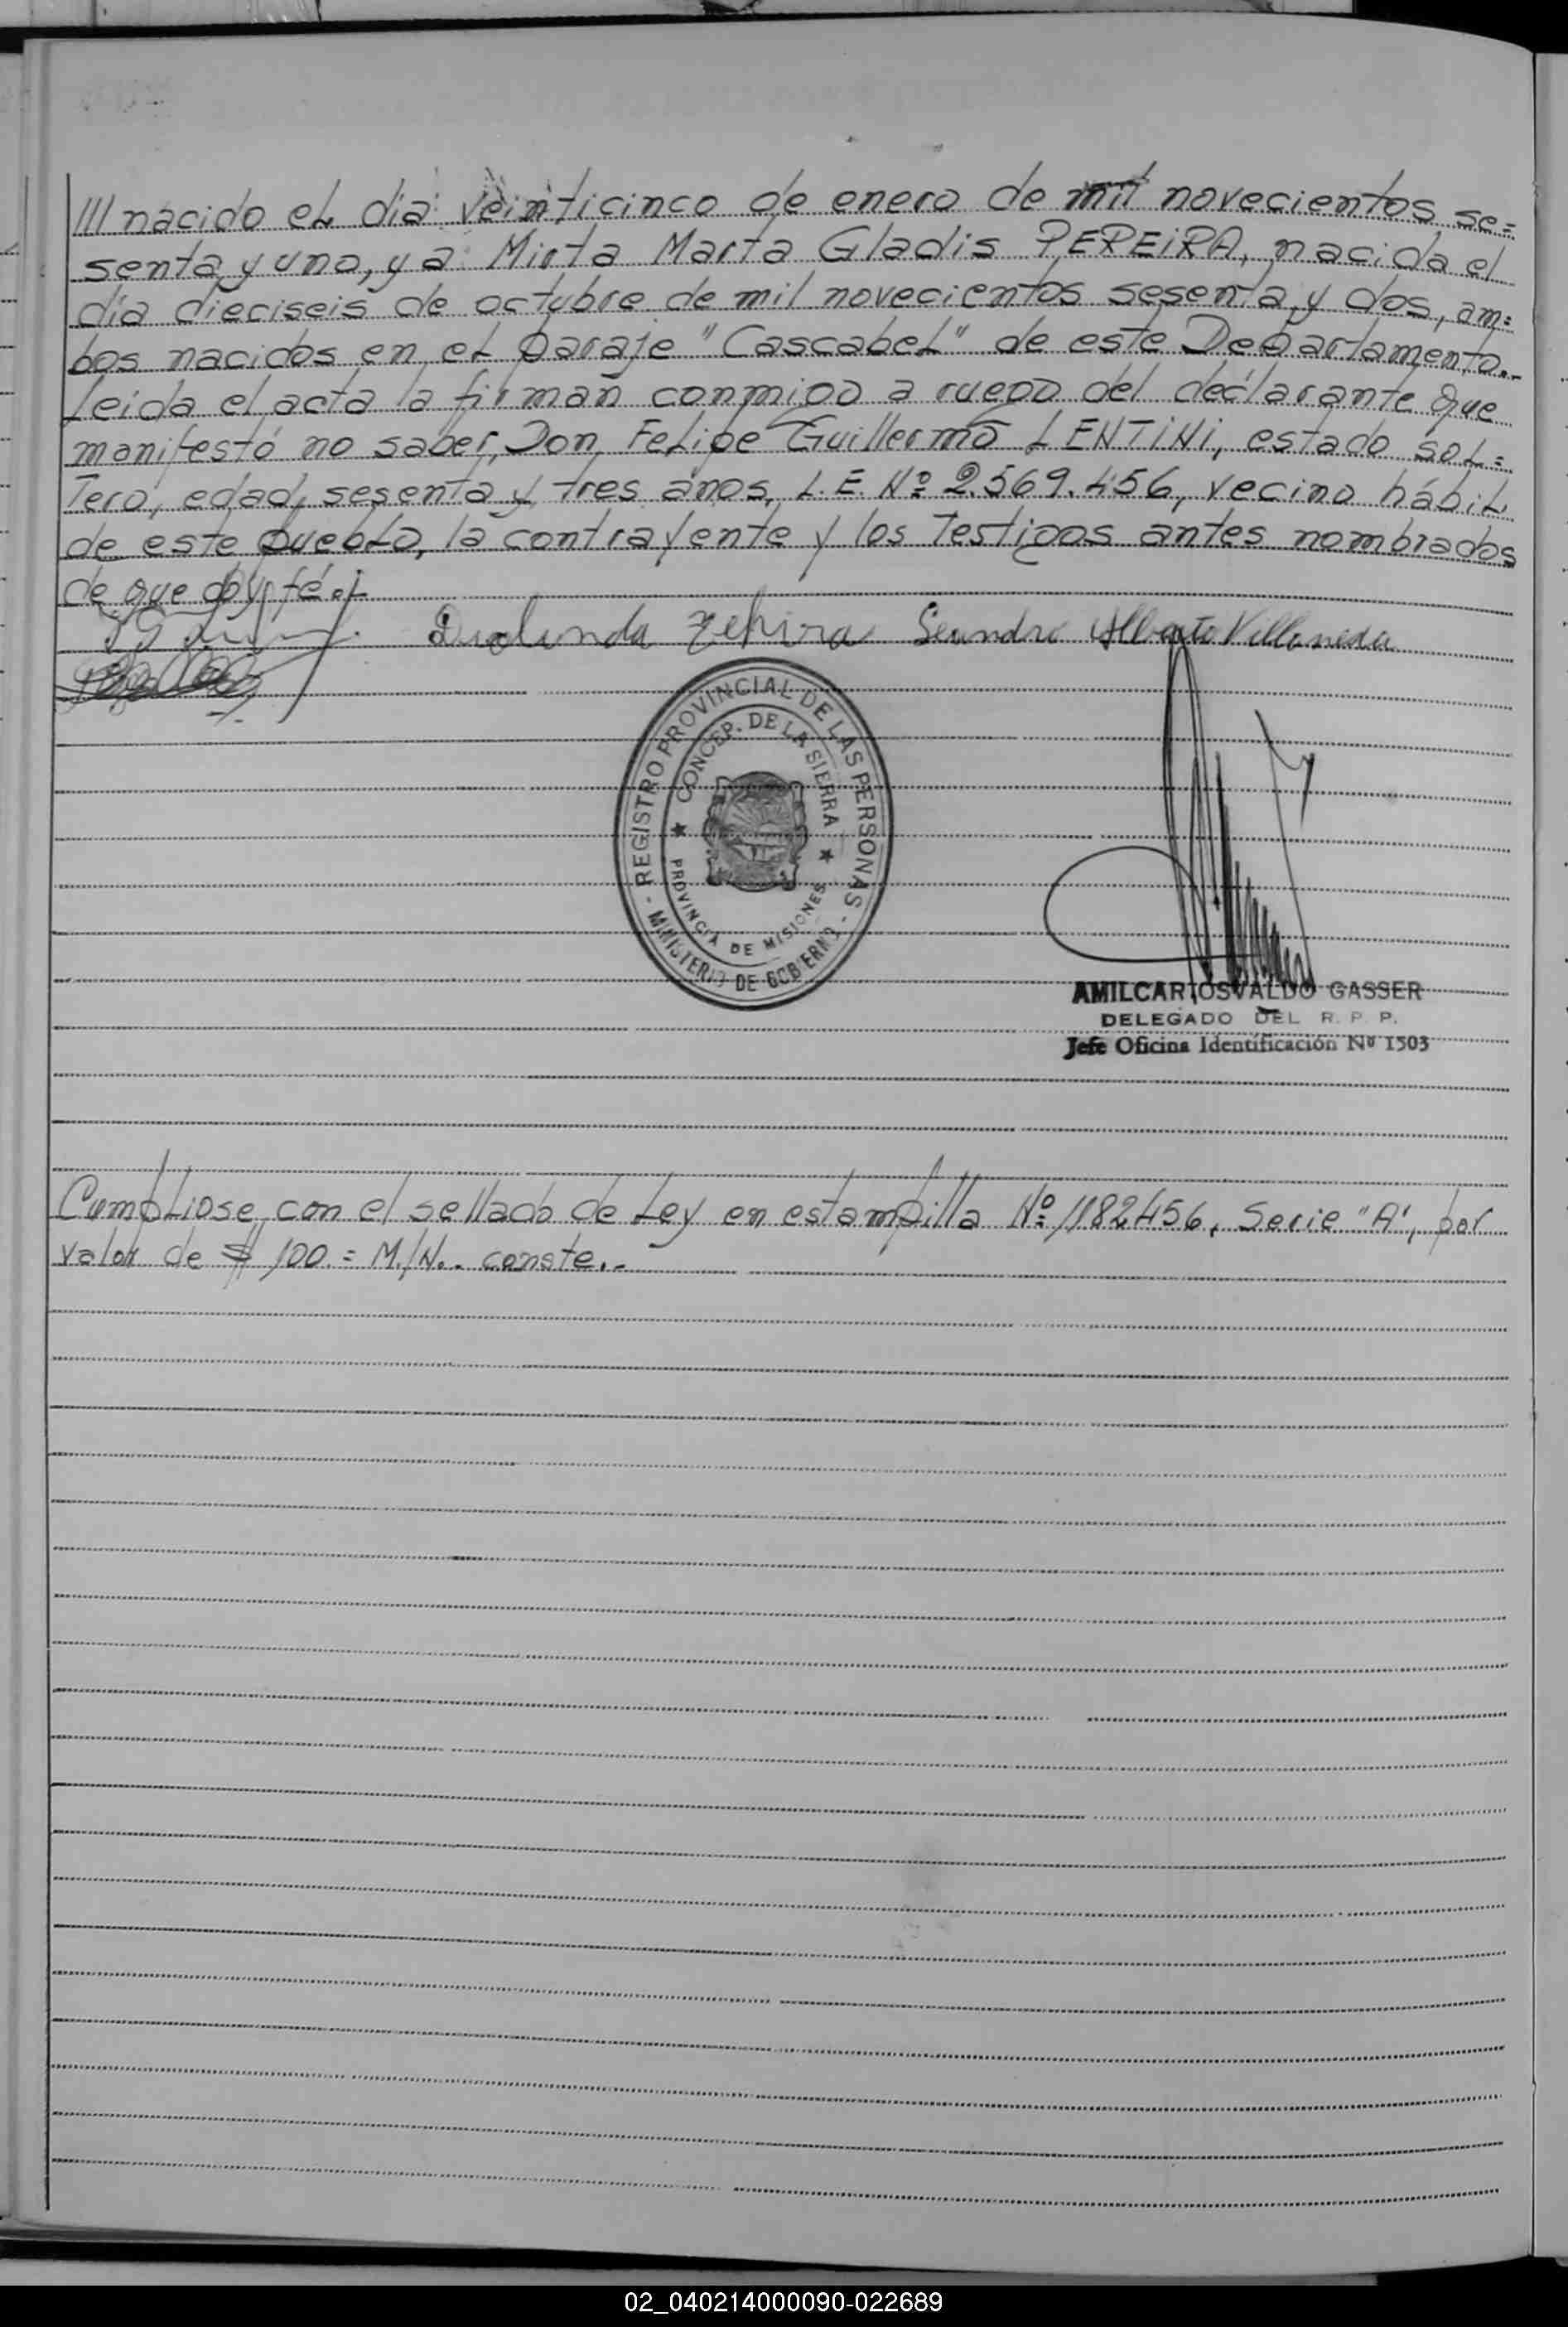 /// nacido el dia veinticinco de enero de mil novecientos se=
senta y uno, y a Mirta Marta Gladis PEREIRA, nacida el
día dieciseis de octubre de mil novecientos sesenta y dos, am=
bos nacidos en el paraje "Cascabel" de este Departamento.-
Leida el acta la firman conmigo a ruego del declarante que
manifestó no saber, Don Felipe Guillermo LENTINI, estado sol=
tero, edad, sesenta y tres años, L.E. Nº 2.569.456, vecino hábil
de este pueblo, la contrayente y los testigos antes nombrados
de que doy fé.-
Alberto Villaneda
REGISTRO PROVINCIAL DE LAS PERSONAS
CONCEP. DE LA SIERRA
PROVINCIA DE MISIONES
- MINISTERIO DE GOBIERNO -
AMILCAR OSVALDO GASSER
DELEGADO DEL R. P. P.
Jefe Oficina Identificación Nº 1503
Cumpliose con el sellado de Ley en estampilla Nº 1182456, Serie "A", por
valor de $ 100.= M/N.- conste.-
02_040214000090-022689